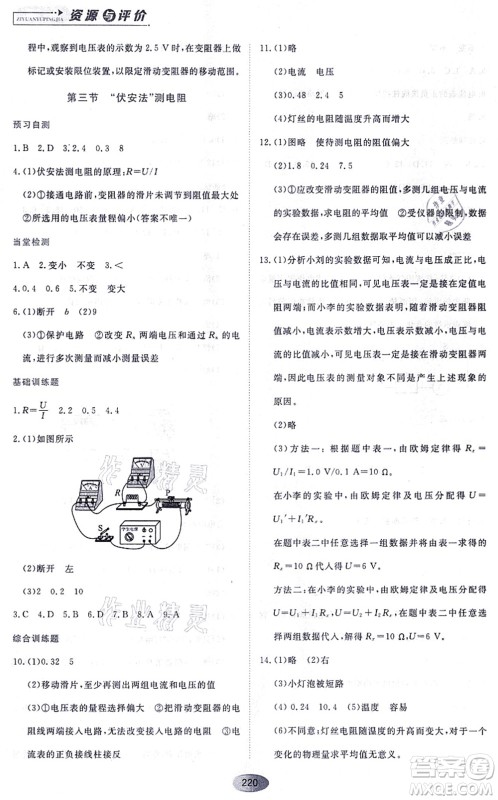 资源与评价
ZIYUANYUPINGJIA
程中，观察到电压表的示数为 2.5 V 时，在变阻器上做
标记或安装限位装置，以限制滑动变阻器的移动范围。
第三节 “伏安法”测电阻
预习自测
1. B 2. D 3. 2.4 0.3 8
4. (1)伏安法测电阻的原理：R=U/I
(2)①接通电路前，变阻器的滑片未调节到阻值最大处
②所使用的电压表量程偏小（答案不唯一）
当堂检测
1. A 2. 变小 不变 3. <
4. 0.4 0.6 5. 不变 变大
6. (1)断开 b (2)9
(3)①保护电路 ②改变 Rx 两端电压和流过的电流，
进行多次测量而减小测量误差
基础训练题
1. R=U/I 2.2 0.5 4.4
2. (1)如图所示
(2)断开 左
(3)2 0.2 10
3. C 4. D 5. D 6. C 7. B 8. A 9. A
综合训练题
10. (1)0.32 5
(2)移动滑片，记下多组电流和电压的值
(3)①使用前滑片没有移到阻值最大处 ②变阻器电阻
线两端接入电路，无法改变电路电流和电压 ③电
流表的正负接线柱接反
11. (1)略
(2)电流 电压
(3)0.48 2.4 5
(4)灯丝的电阻随温度升高而增大
12. (1)图略 使待测电阻的阻值偏大
(2)1.8 0.24 7.5
(3)①应改变滑动变阻器的阻值，多测几组电压与电流
的实验数据，求电阻的平均值 ②受仪器的限制，数据
会存在误差，多测几组数据取平均可以减小误差
13. (1)分析小刘的实验数据可知，电流与电压成正比，电
压与电流的比值是个定值；分析小李的实验数据可
知，电流减小，电压表示数增大，且电压与电流的比值
不是定值。在电路中，随着滑动变阻器接入电路的电
阻变大，电流变小，而接在滑动变阻器两端的电压表
的示数增大。因此电压表的测量对象不同是产生上
述现象的原因。
(2)略
(3)方法一：根据题中表一，由欧姆定律得 Rx=
U1/I1=1.0 V/0.10 A=10 Ω。
在小李的实验中，由欧姆定律及电压关系得 Rx=
U1'/I1'=(U-U1)/I1'，
在题中表二中任意选择一组数据，将 U=6 V，Rx=
10 Ω代入得，Rx=10 Ω。
方法二：在小李的实验中，由欧姆定律及电压关系得
U=U1+I1Rx，U=U2+I2Rx，在题中表二中任意选
择两组数据代入，联立解得 Rx=10 Ω，U=6 V。
14. (1)略 (2)右
(3)小灯泡被短路
(4)0.24 10.4 (5)温度 容易
(6)不同意；灯丝电阻随温度的升高而变大，对于一个
变化的物理量求平均值无意义。
220
作业精灵
作业精灵
答案圈
MXQE.COM